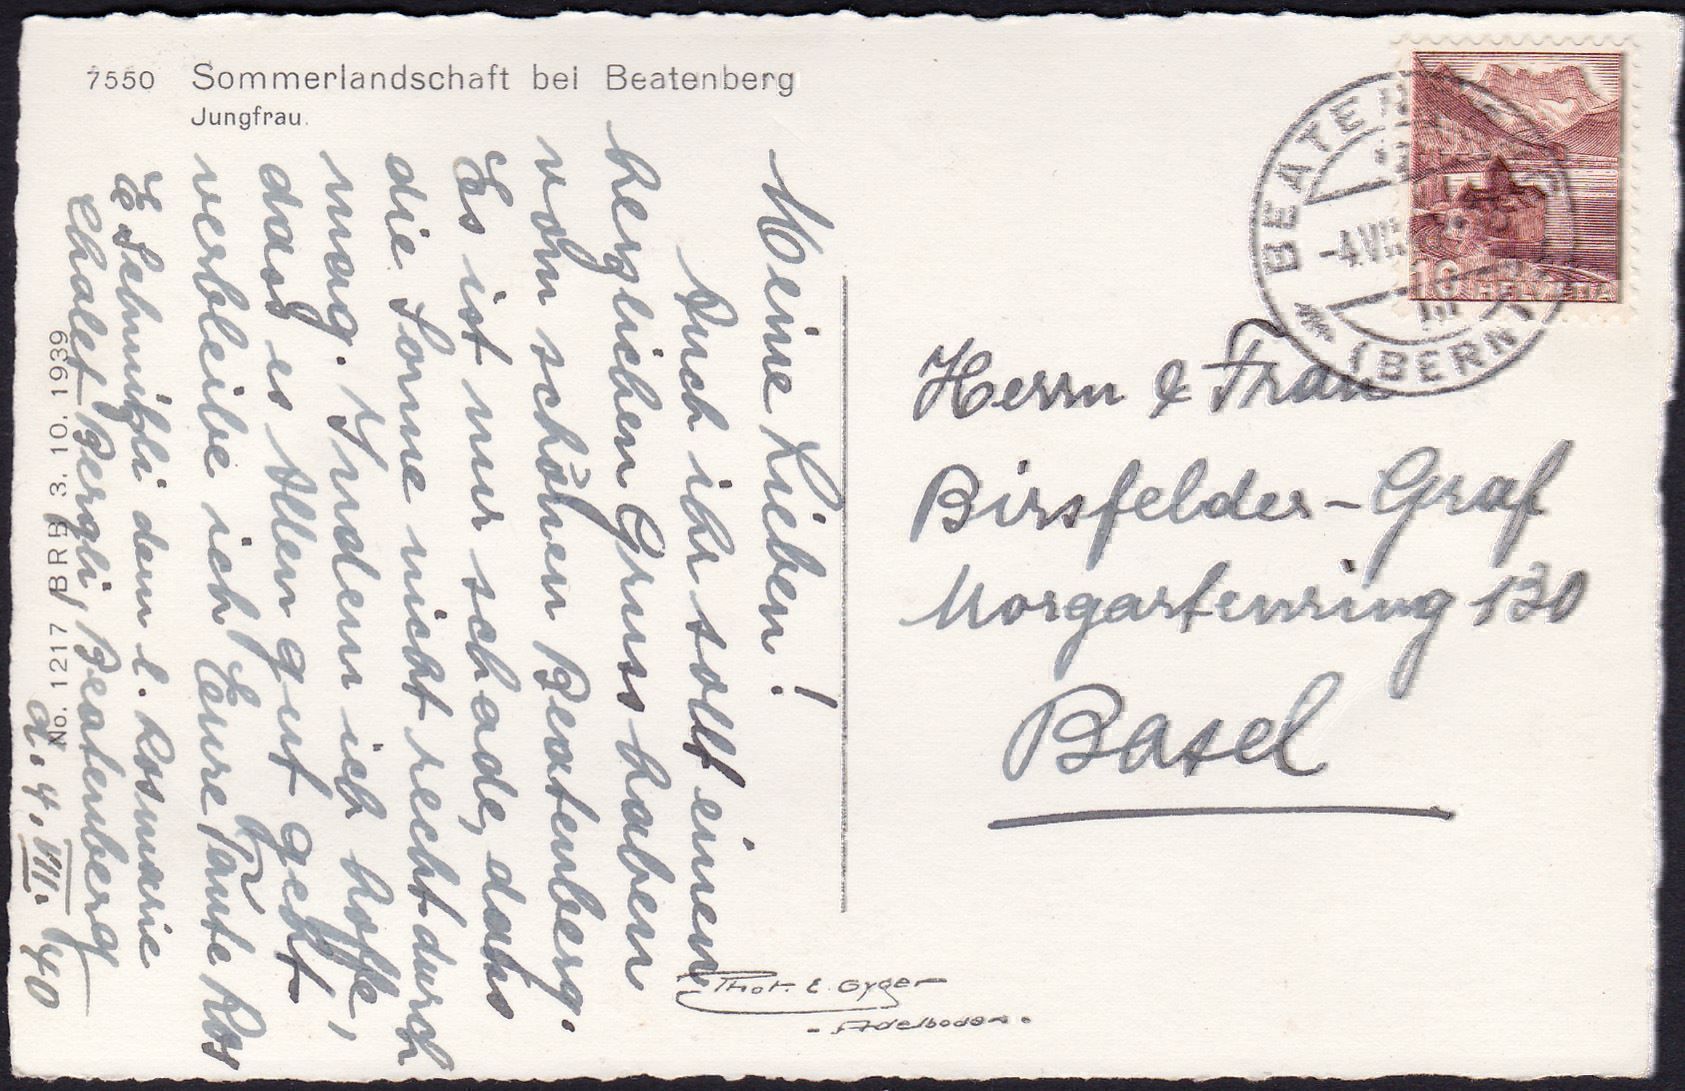 7550 Sommerlandschaft bei Beatenberg
Jungfrau.
Meine Lieben!
Auch ihr sollt einen
herzlichen Gruss haben
vom schönen Beatenberg.
Es ist nur schade, dass
die Sonne nicht recht durch
mag. Indem ich hoffe,
dass es Allen gut geht
verbleibe ich Eure Tante Ros
E Schmützli dem l. Rosmarie
Chalet Bergli Beatenberg
d. 4. VII. 40
No. 1217 BRB 3. 10. 1939
BEATEN
-4.VII
(BERN)
10 HELVETIA
Herrn & Frau
Birsfelder-Graf
Morgartenring 130
Basel
Phot. E. Gyger
- Adelboden.